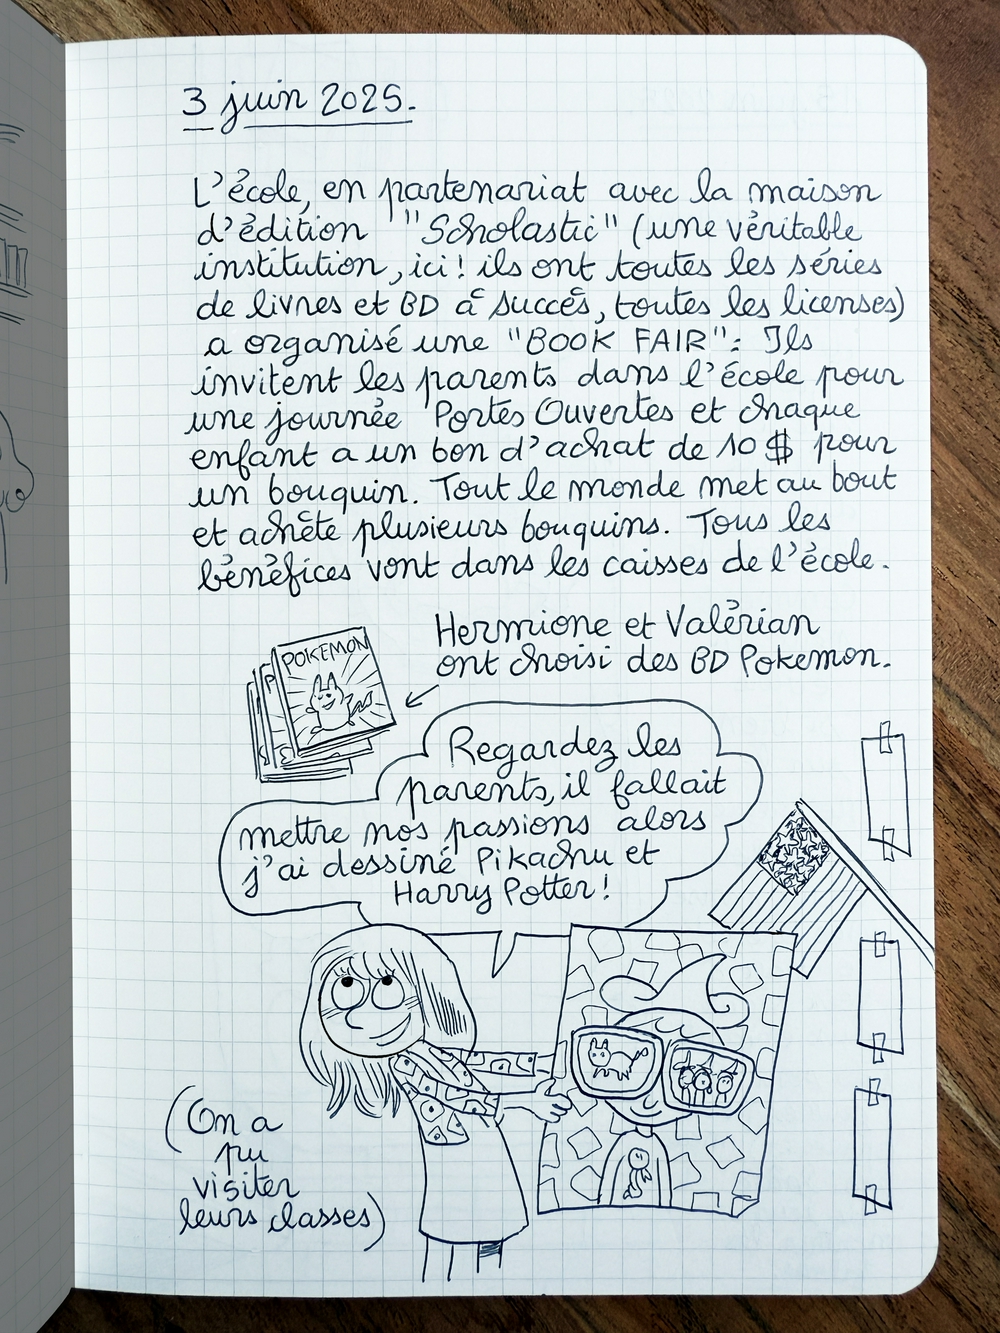 3 juin 2025.
L'école, en partenariat avec la maison
d'édition "Scholastic" (une véritable
institution, ici ! ils ont toutes les séries
de livres et BD à succès, toutes les licenses)
a organisé une "BOOK FAIR": Ils
invitent les parents dans l'école pour
une journée Portes Ouvertes et chaque
enfant a un bon d'achat de 10 $ pour
un bouquin. Tout le monde met au bout
et achète plusieurs bouquins. Tous les
bénéfices vont dans les caisses de l'école.
Hermione et Valérian
ont choisi des BD Pokemon.
POKEMON
Regardez les
parents, il fallait
mettre nos passions alors
j'ai dessiné Pikachu et
Harry Potter !
(On a
pu
visiter
leurs classes)